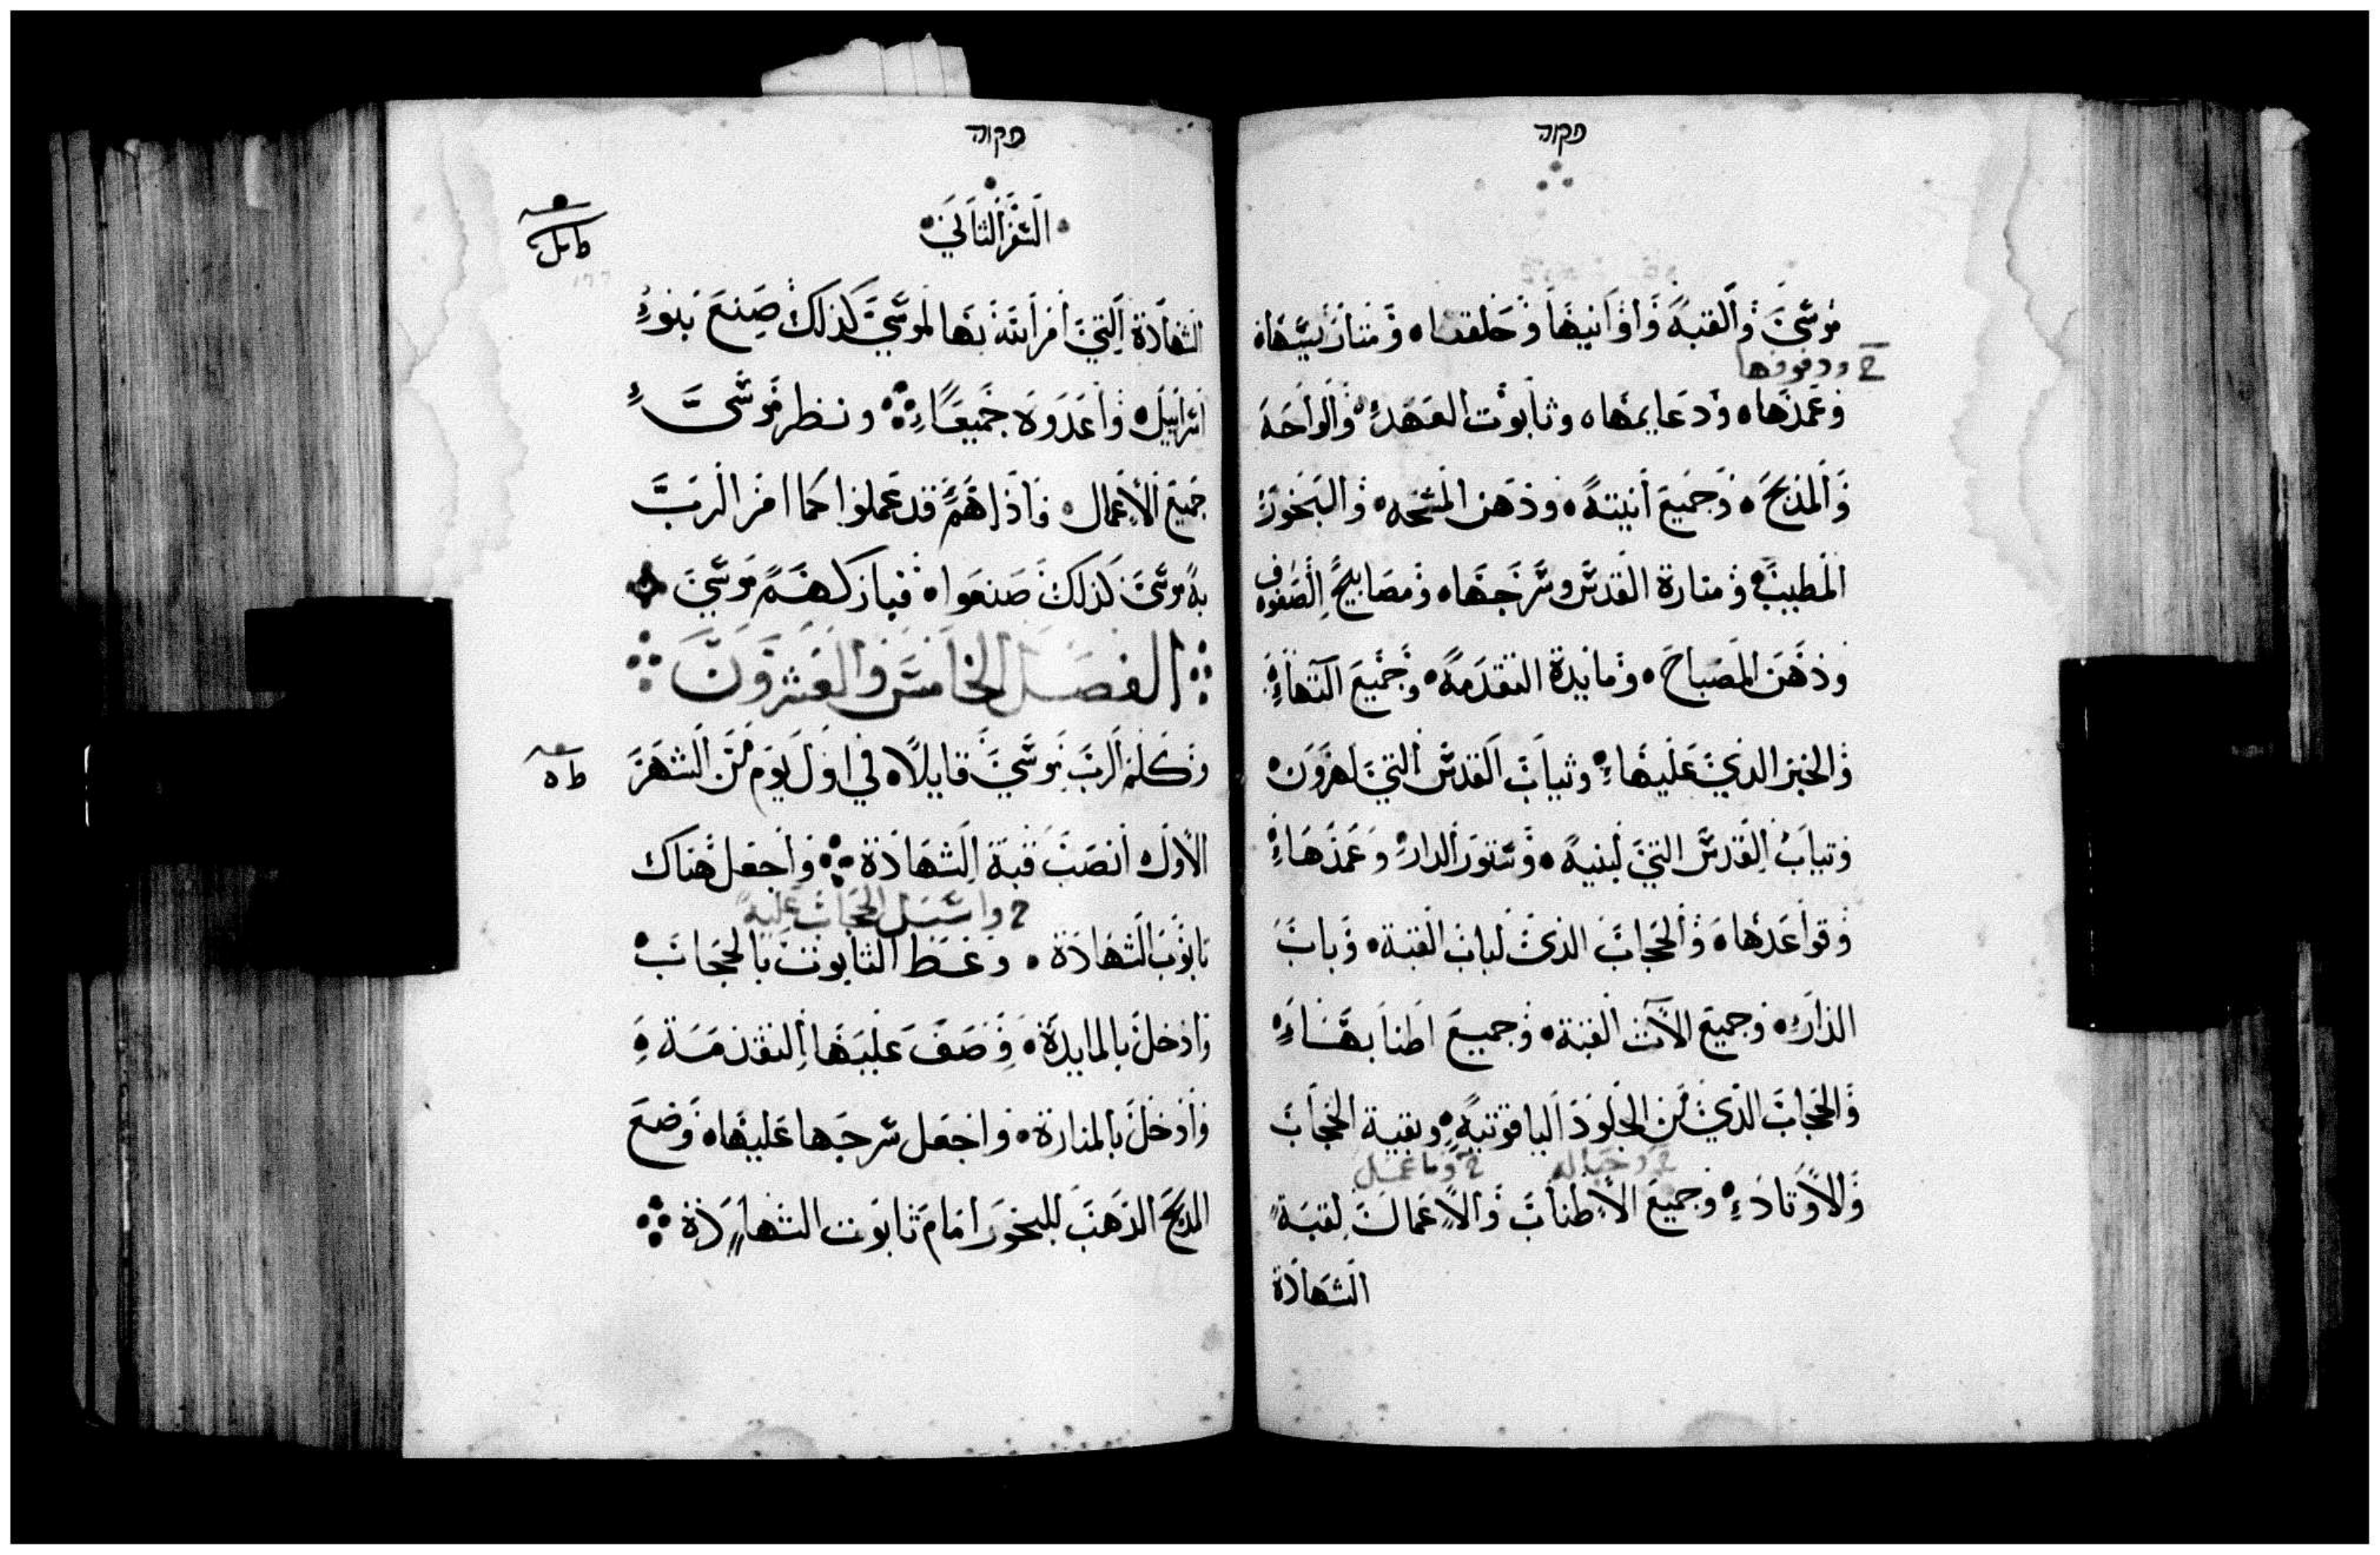 פקוה
موسي والقبة واوانيها وحلقها ومتارسيها
2 ودفوفها
وعمدها ودعايمها وتابوت العهد والواحه
والمذبح وجميع انيته ودهن المسحه والبخور
المطيب ومنارة القدس وسرجها ومصابيح الصفوف
ودهن المصباح ومايدة التقدمه وجميع آلتها
والخبز الذي عليها وثياب القدس التي لهرون
وتياب القدس التي لبنيه وستور الدار وعمدها
وقواعدها والحجاب الذي لباب القبة وباب
الدار وجميع الآت القبة وجميع اطنابها
والحجاب الذي من الجلود الياقوتيه وبقية الحجاب
2 وحباله 2 وما عمل
والاوتاد وجميع الاطناب والاعمال لقبة
الشهادة
פקוה
السفر الثاني
الشهادة التي امر الله بها لموسي كذلك صنع بنوا
اسراييل واعدوه جميعا ونظر موسي
جميع الاعمال فاذا هم قد عملوا كما امر الرب
به موسي كذلك صنعوا فباركهم موسي
الفصل الخامس والعشرون
وكلم الرب موسي قايلا في اول يوم من الشهر
الاول انصب قبة الشهادة واجعل هناك
2 واسبل الحجاب عليه
تابوت الشهادة وغط التابوت بالحجاب
وادخل بالمايدة وصف عليها التقدمة
وادخل بالمنارة واجعل سرجها عليها وضع
المذبح الذهب للبخور امام تابوت الشهادة